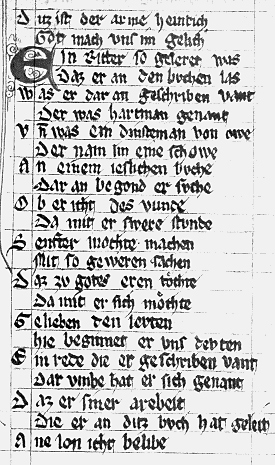 Ditz ist der arme heinrich
Got mach vns im gelich
Ein Ritter so geleret was
Daz er an den bvchen las
Was er dar an geschriben vant
Der was hartman genant
Vñ was ein dinstman von owe
Der nam im eine schowe
An einem ieslichen bvche
Dar an begond er svche
Ob er icht des vunde
Da mit er swere stvnde
Senfter mochte machen
Mit so geweren sachen
Daz zv gotes eren töchte
Da mit er sich möchte
Gelieben den levten
hie beginnet er vns devten
Ein rede die er geschriben vant
Dar vmbe hat er sich genant
Daz er siner arebeit
Die er an ditz bvch hat geleit
Ane lon icht belibe